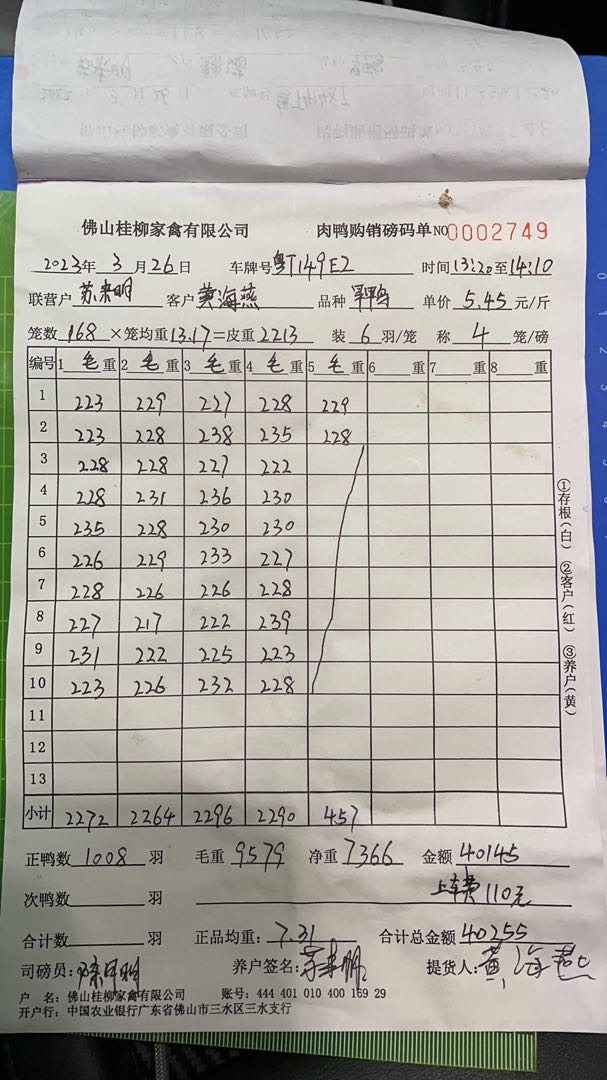 佛山桂柳家禽有限公司 肉鸭购销磅码单 NO 0002749
2023年 3 月 26 日 车牌号 粤T149E2 时间 13:20 至 14:10
联营户 苏来明 客户 黄海燕 品种 单价 5.45 元/斤
笼数 168 ×笼均重 13.17 =皮重 2213 装 6 羽/笼 称 4 笼/磅
编号 1 毛 重 2 毛 重 3 毛 重 4 毛 重 5 毛 重 6 重 7 重 8 重
1 223 229 227 228 229
2 223 228 238 235 228
3 228 228 227 222
4 228 231 236 230
5 235 228 230 230
6 226 229 233 227
7 228 226 226 228
8 227 217 222 239
9 231 222 225 223
10 223 226 232 228
11
12
13
小计 2272 2264 2296 2290 457
正鸭数 1008 羽 毛重 9579 净重 7366 金额 40145
次鸭数 羽 上车费110元
合计数 羽 正品均重: 7.31 合计总金额 40255
司磅员: 养户签名: 苏来明 提货人: 黄海燕
户 名: 佛山桂柳家禽有限公司 账号: 444 401 010 400 169 29
开户行: 中国农业银行广东省佛山市三水区三水支行
①存根(白) ②客户(红) ③养户(黄)